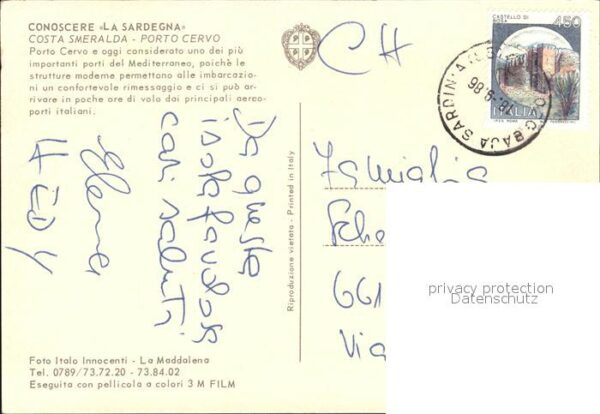 CONOSCERE «LA SARDEGNA»
COSTA SMERALDA - PORTO CERVO
Porto Cervo e oggi considerato uno dei più
importanti porti del Mediterraneo, poichè le
strutture moderne permettono alle imbarcazio-
ni un confortevole rimessaggio e ci si può ar-
rivare in poche ore di volo dai principali aereo-
porti italiani.
Da questa
isola favolosa
cari saluti
HEDY
Riproduzione vietata - Printed in Italy
CH
CASTELLO DI
BOSA
450
ITALIA
BAJA SARDINIA
Famiglia
Sche
661
Via
privacy protection
Datenschutz
Foto Italo Innocenti - La Maddalena
Tel. 0789/73.72.20 - 73.84.02
Eseguita con pellicola a colori 3 M FILM